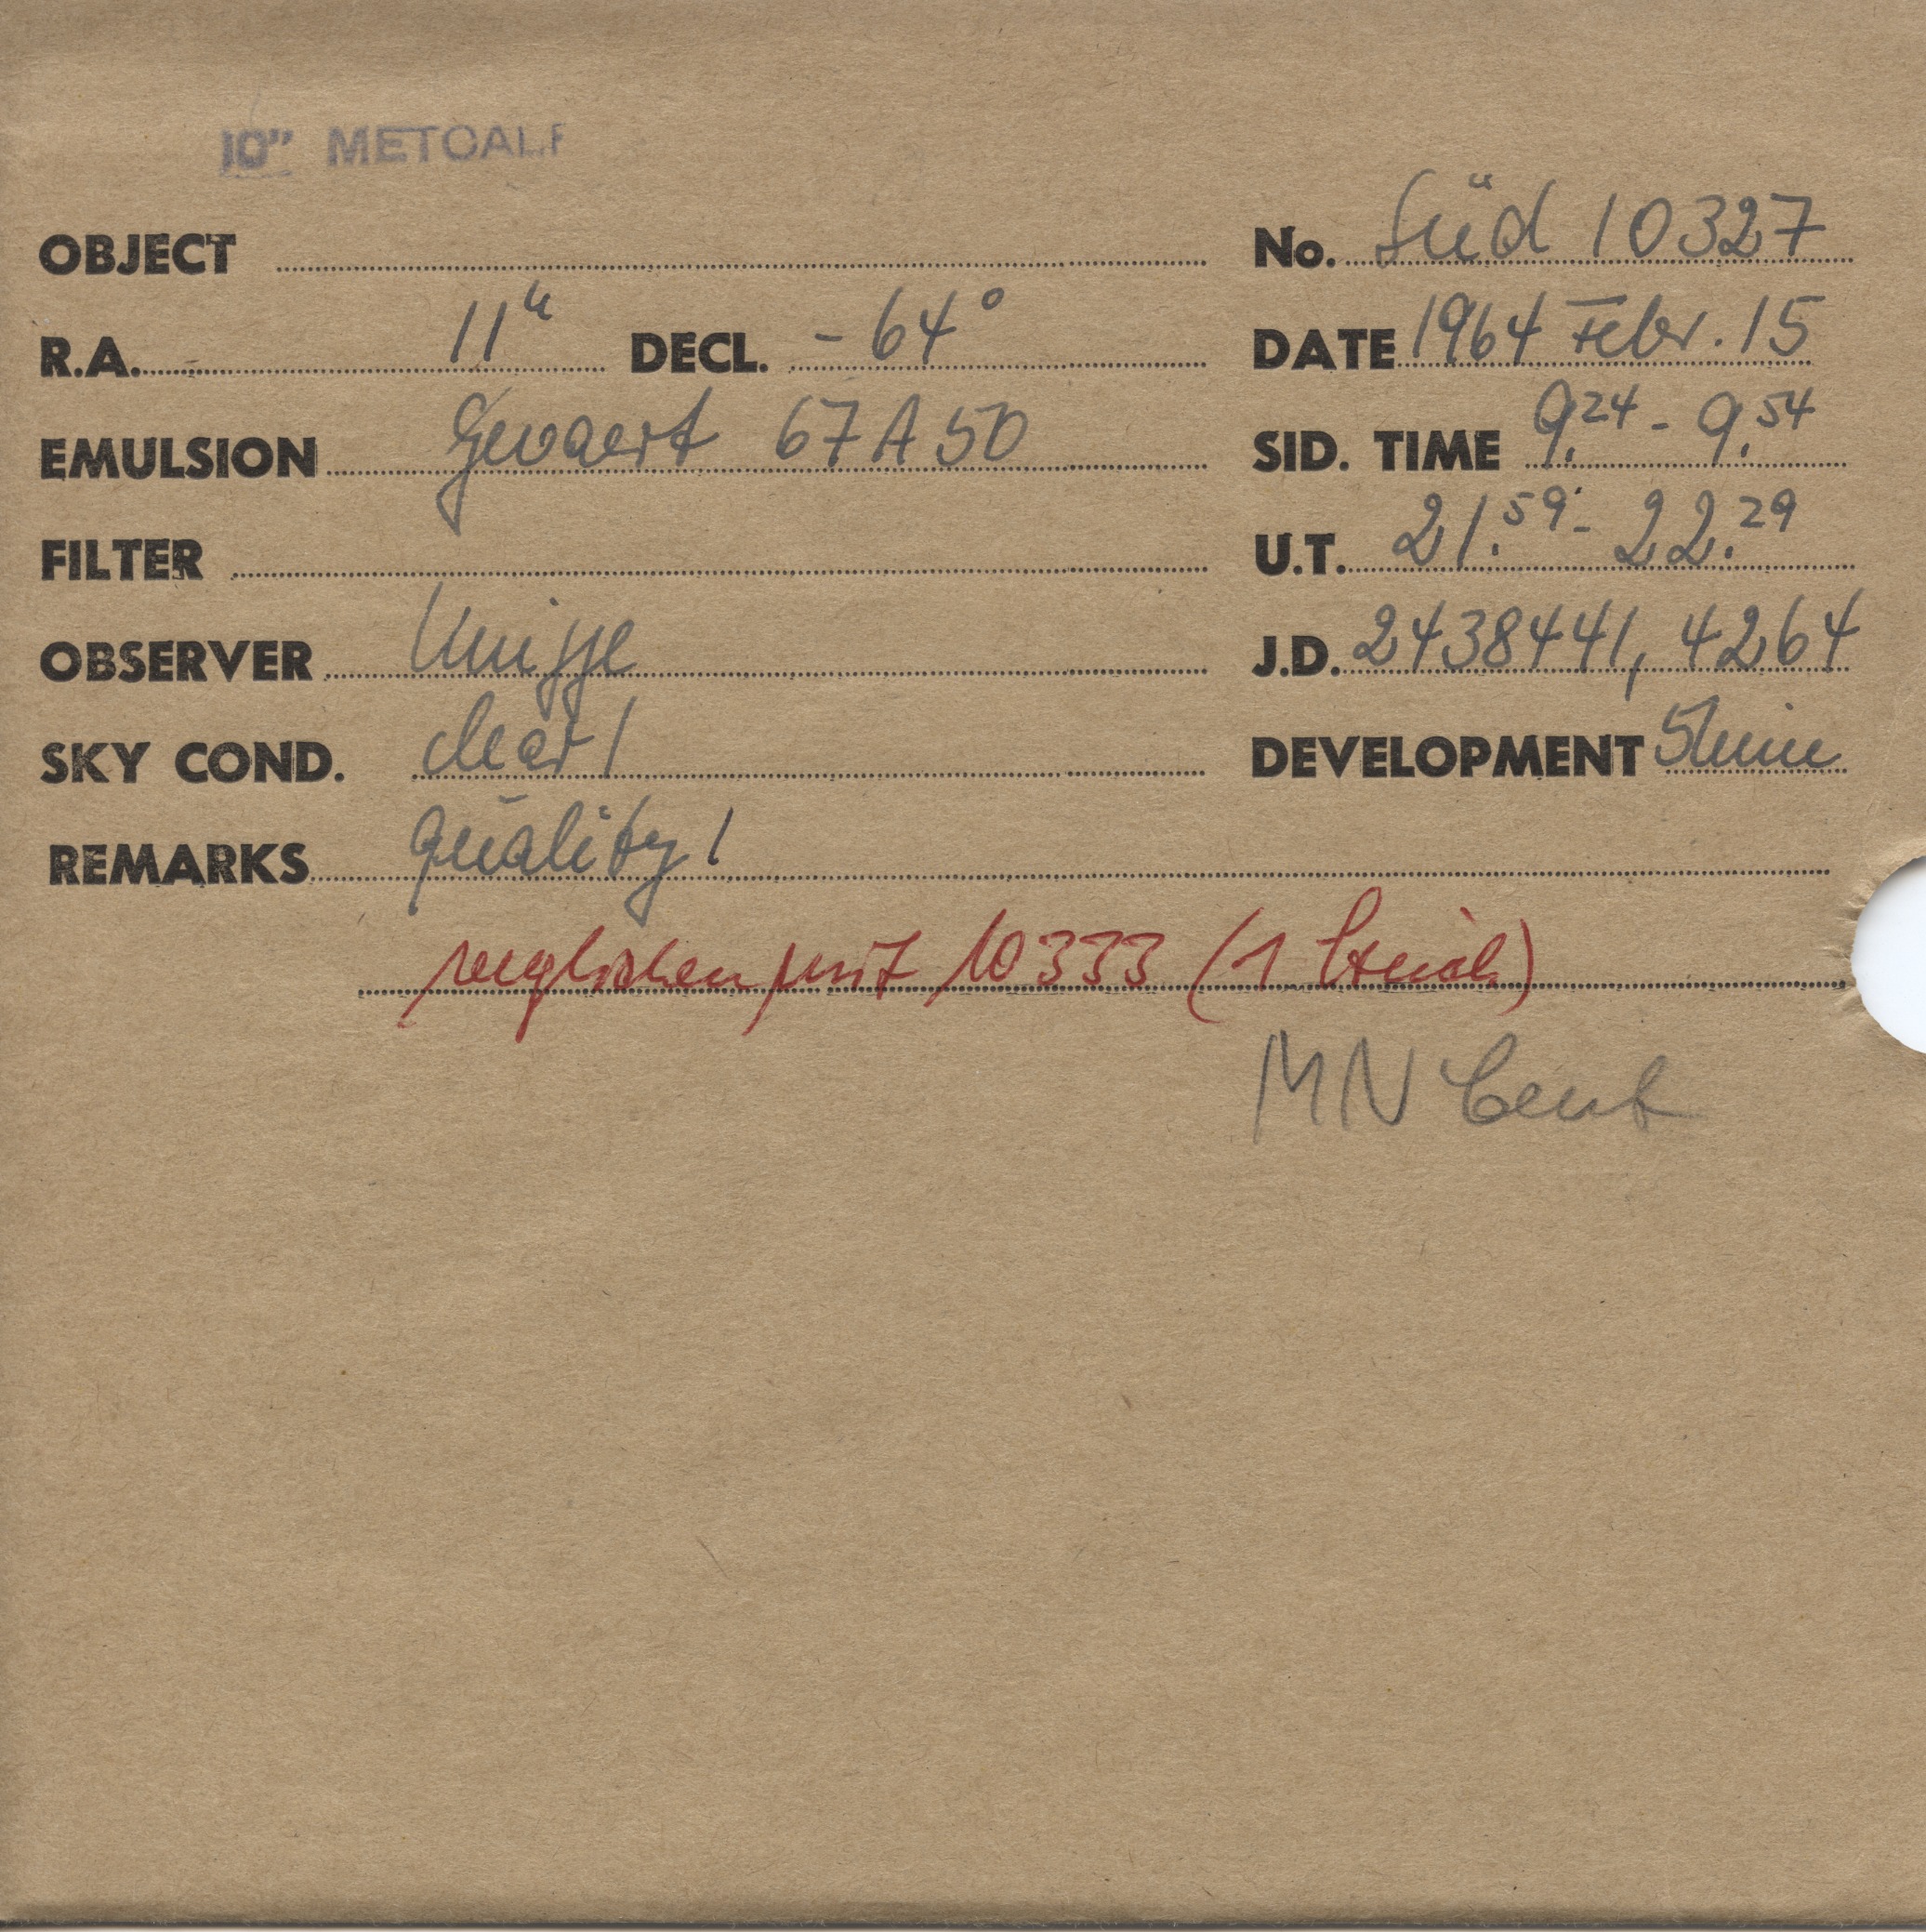 10" METCALF
OBJECT No. Süd 10327
R.A. 11h DECL. -64° DATE 1964 Febr. 15
EMULSION Gevaert 67A50 SID. TIME 9.24 - 9.54
FILTER U.T. 21.59 - 22.29
OBSERVER Knigge J.D. 2438441,4264
SKY COND. clear 1 DEVELOPMENT 5 min
REMARKS quality 1
verglichen mit 10333 (1 Stück)
MN Cent